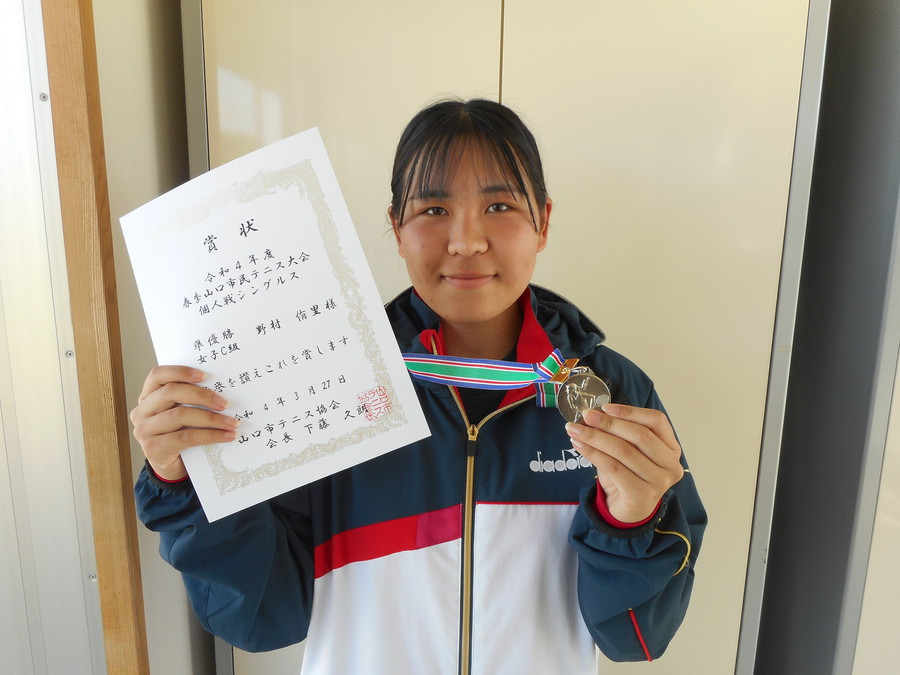 賞 状
令和4年度
春季山口市民テニス大会
個人戦シングルス
準優勝 野村 侑里様
女子C級
誉を讃えこれを賞します
令和 4年 3月 27日
山口市テニス協会
会長 下藤 久朗
diadora